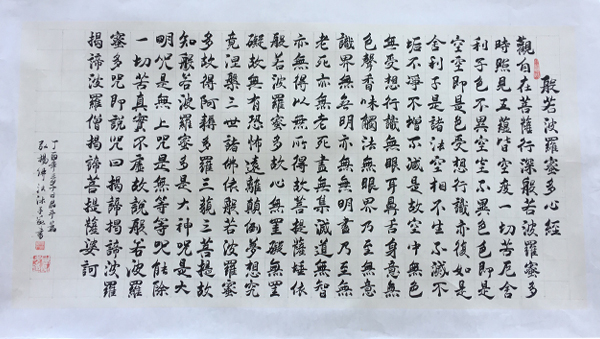 般若波羅蜜多心經
觀自在菩薩行深般若波羅蜜多
時照見五蘊皆空度一切苦厄舍
利子色不異空空不異色色即是
空空即是色受想行識亦復如是
舍利子是諸法空相不生不滅不
垢不淨不增不減是故空中無色
無受想行識無眼耳鼻舌身意無
色聲香味觸法無眼界乃至無意
識界無無明亦無無明盡乃至無
老死亦無老死盡無集滅道無智
亦無得以無所得故菩提薩埵依
般若波羅蜜多故心無罣礙無罣
礙故無有恐怖遠離顛倒夢想究
竟涅槃三世諸佛依般若波羅蜜
多故得阿耨多羅三藐三菩提故
知般若波羅蜜多是大神咒是大
明咒是無上咒是無等等咒能除
一切苦真實不虛故說般若波羅
蜜多咒即說咒曰揭諦揭諦波羅
揭諦波羅僧揭諦菩提薩婆訶
丁酉年
弘揚佛法 書